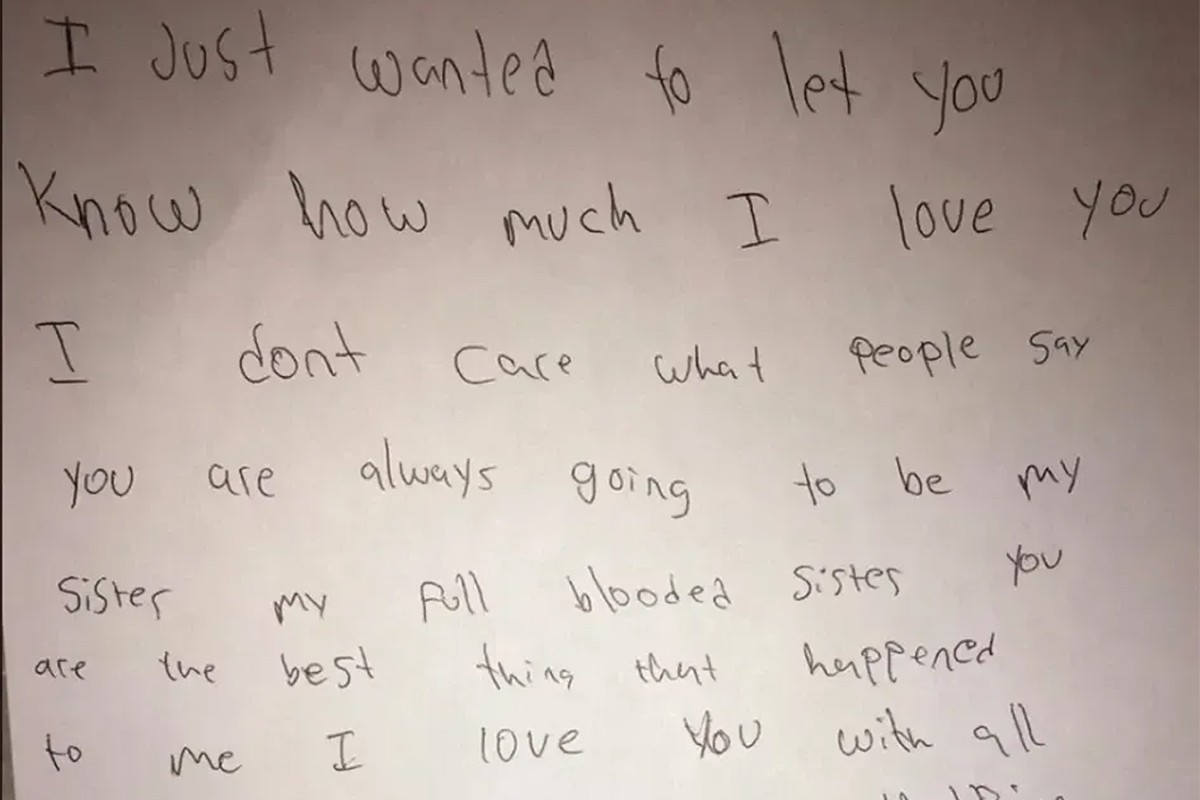 I Just wanted to let you
Know how much I love you
I dont care what people say
you are always going to be my
Sister my full blooded sister you
are the best thing that happened
to me I love you with all